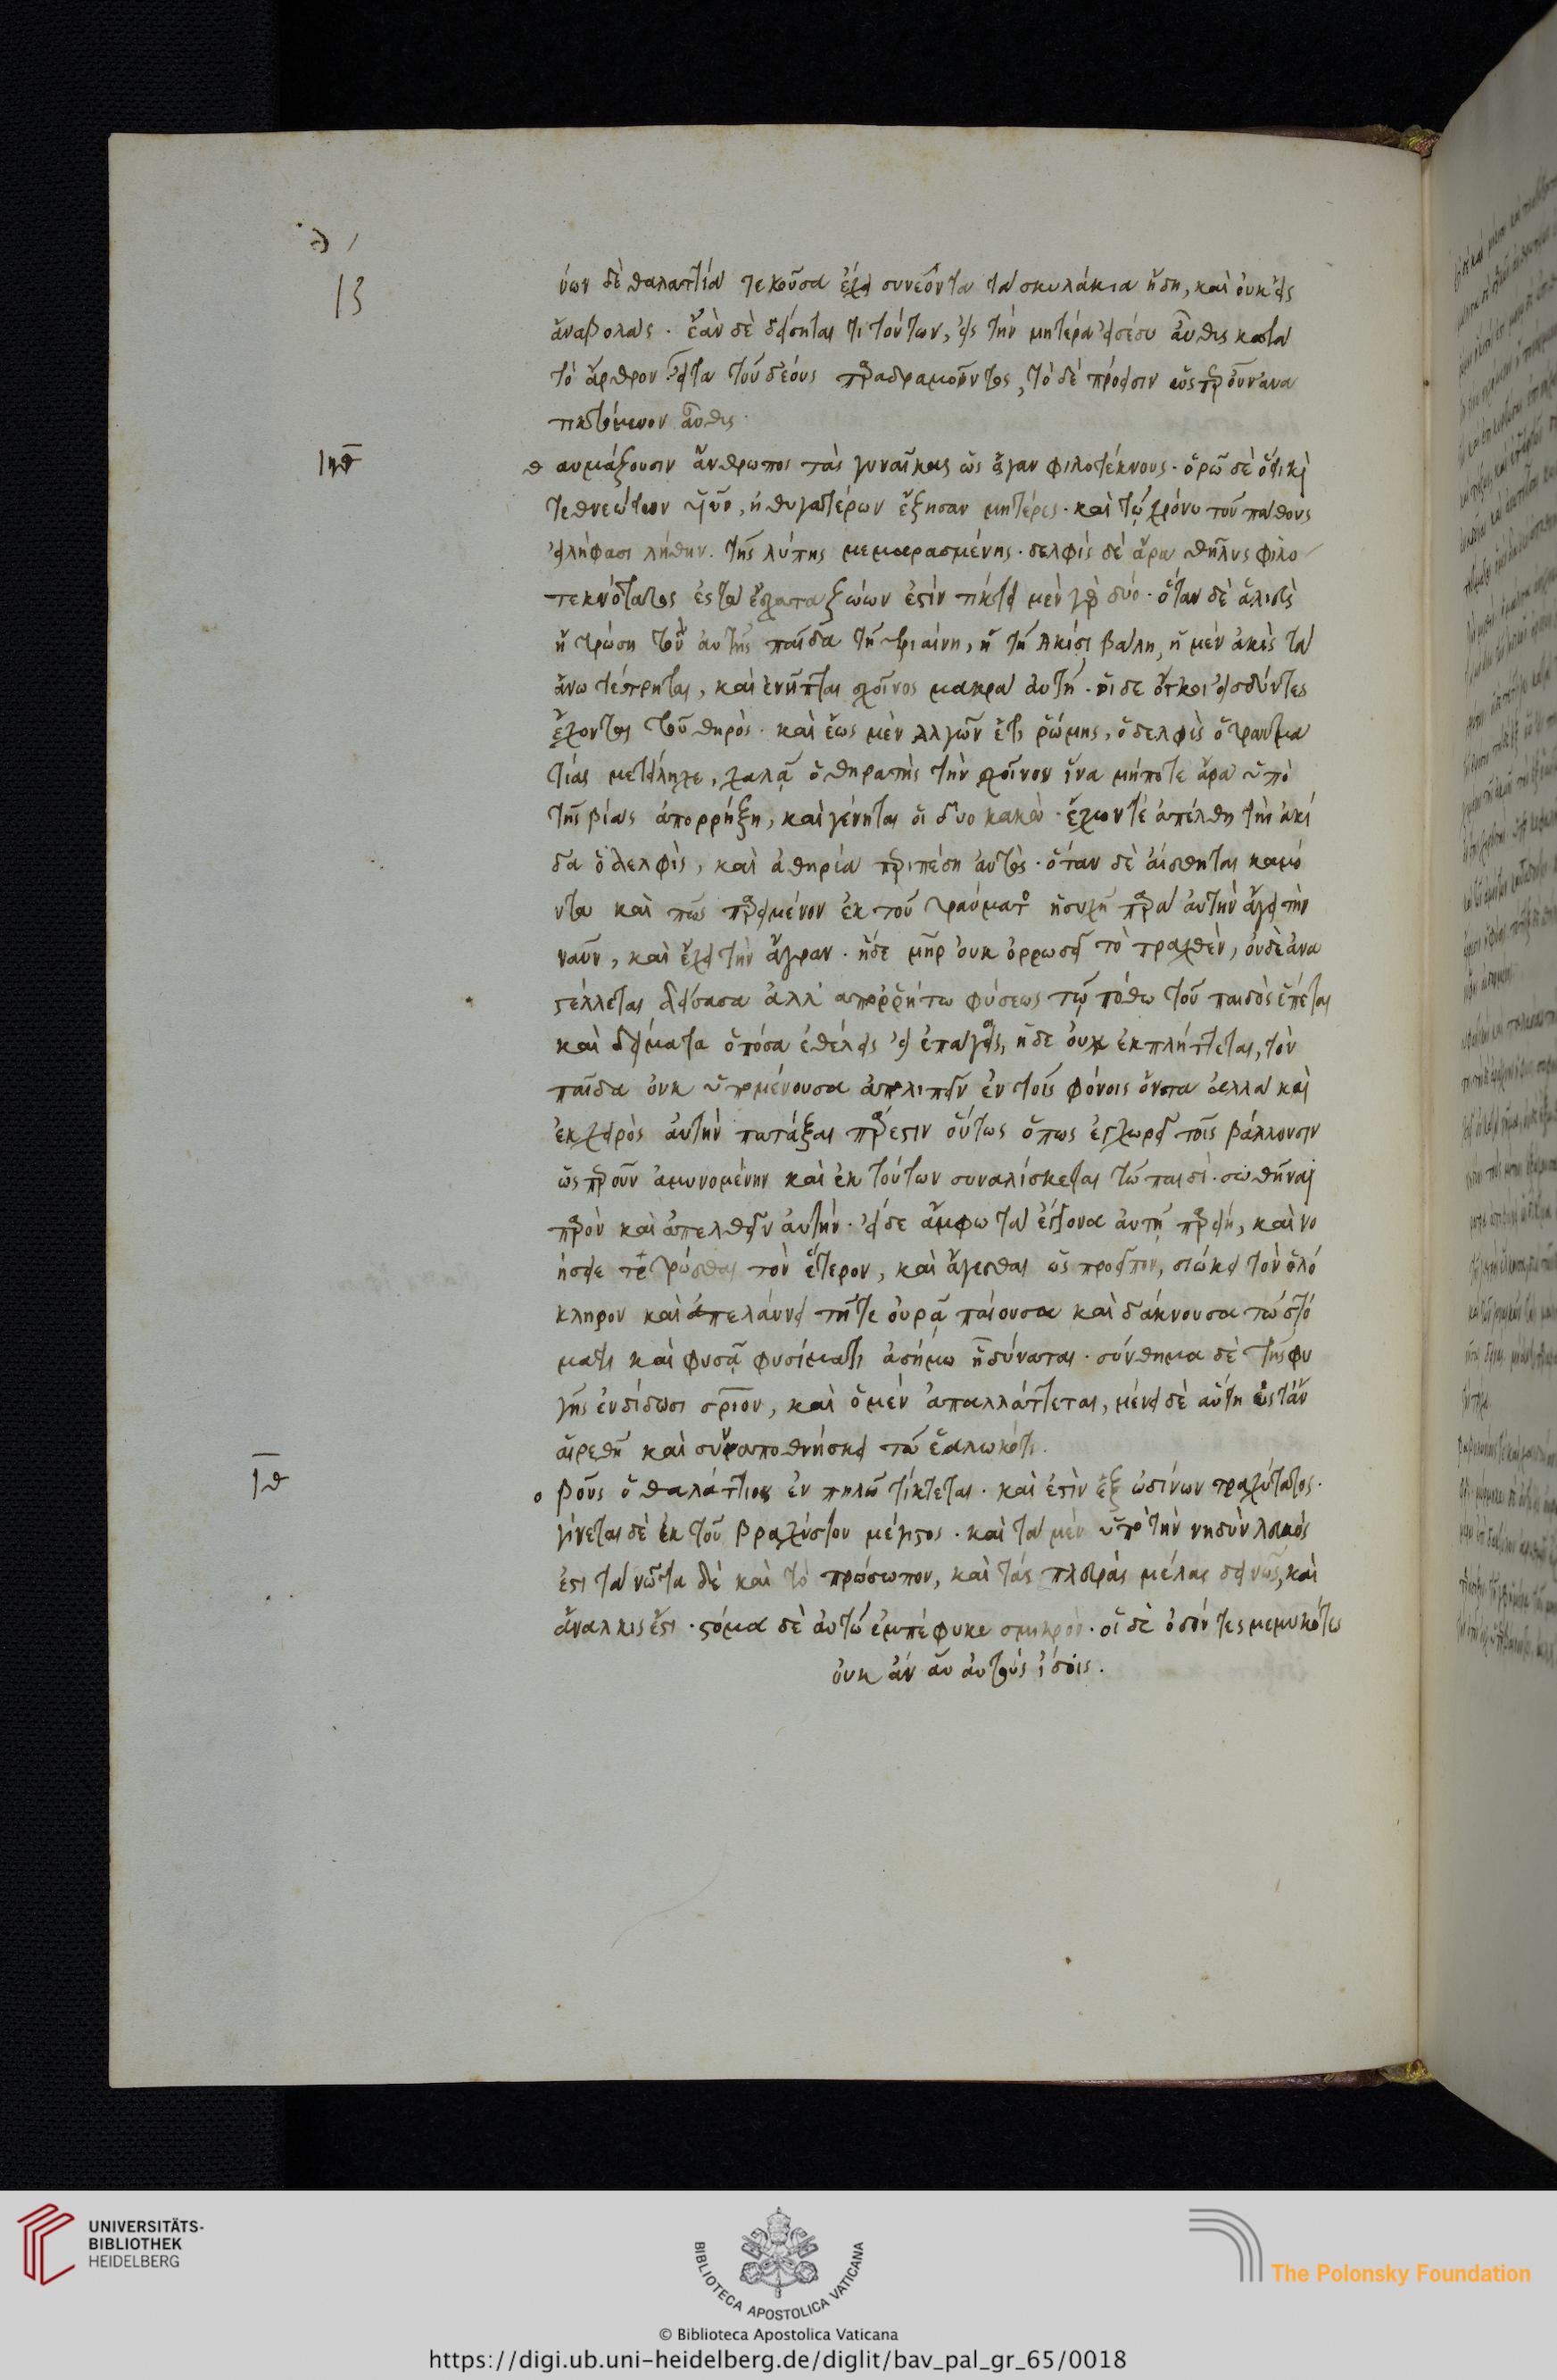 ∂
13
ύων δὲ θαλαττία τεκοῦσα ἔχει συνέοντα τὰ σκυλάκια ἤδη, καὶ οὐκ εἰς
ἀναβολάς. ἐὰν δὲ δείσηται τι τούτων, εἰς τὴν μητέρα εἰσέδυ αὖθις κατὰ
τὸ ἄρθρον εἶτα τοῦ δέους παραδραμόντος, τὸ δὲ πρόεισιν ὥσπερ οὖν ἀνα
τικτόμενον αὖθις.
ιη
θ αυμάζουσιν ἄνθρωποι τὰς γυναῖκας ὡς ἄγαν φιλοτέκνους. ὁρῶ δὲ ὅτι καὶ
τεθνεώτων υἱῶν, ἢ θυγατέρων ἔζησαν μητέρες. καὶ τῷ χρόνω τοῦ πάθους
εἰλήφασι λήθην. τῆς λύπης μεμαρασμένης. δελφὶς δὲ ἄρα θῆλυς φιλο
τεκνότατος ἐς τὰ ἔσχατα ζώων ἐστίν τίκτει μὲν γὰρ δύο. ὅταν δὲ ἁλιεὺς
ἢ τρώση τὸν αὐτῆς παῖδα τῇ τριαίνη, ἢ τῇ ἀκίδι βάλη, ἡ μὲν ἀκὶς τὰ
ἄνω τέτρηται, καὶ ἐνῆπται σχοῖνος μακρὰ αὐτῇ. οἱ δὲ ὄγκοι εἰσδύντες
ἔχονται τοῦ θηρός. καὶ ἕως μὲν ἀλγῶν ἔτι ῥώμης, ὁ δελφὶς ὁ τραυμα
τίας μετείληχε, χαλᾷ ὁ θηρατὴς τὴν σχοῖνον ἵνα μήποτε ἄρα ὑπὸ
τῆς βίας ἀπορρήξη, καὶ γένηται οἱ δύο κακὰ. ἔχων τὲ ἀπέλθη τὴν ἀκί
δα ὁ δελφὶς, καὶ ἀθηρία περιπέση αὐτὸς. ὅταν δὲ αἴσθηται καμό
ντα καὶ πῶς παρειμένον ἐκ τοῦ τραύματος ἡσυχῇ παρ' αὐτὴν ἄγει τὴν
ναῦν, καὶ ἔχει τὴν ἄγραν. ἡ δὲ μήτηρ οὐκ ὀρρωδεῖ τὸ πραχθὲν, οὐδὲ ἀνα
στέλλεται δείσασα ἀλλ' ἀπορρήτω φύσεως τῷ πόθω τοῦ παιδὸς ἕπεται
καὶ δείματα ὁπόσα ἐθέλεις εἰ ἐπάγοις, ἡ δὲ οὐκ ἐκπλήττεται, τὸν
παῖδα οὐκ ὑπομένουσα ἀπολιπεῖν ἐν τοῖς φόνοις ὄντα ἀλλὰ καὶ
ἐκ χειρὸς αὐτὴν πατάξαι πάρεστιν οὕτως ὅπως ἐγχωρεῖ τοῖς βάλλουσιν
ὥσπερ οὖν ἀμυνομένην καὶ ἐκ τούτων συναλίσκεται τῷ παιδὶ. σωθῆναι
παρὸν καὶ ἀπελθεῖν αὐτὴν. εἰ δὲ ἄμφω τὰ ἔγγονα αὐτῇ παρείη, καὶ νο
ήσειε τετρῶσθαι τὸν ἕτερον, καὶ ἄγεσθαι ὡς προεῖπον, διώκει τὸν ὁλό
κληρον καὶ ἀπελαύνει τῇ τε οὐρᾷ παίουσα καὶ δάκνουσα τῷ στό
ματι καὶ φυσᾷ φυσίματι ἀσήμω ᾗ δύναται. σύνθημα δὲ τῆς φυ
γῆς ἐνδίδωσι σωτήριον, καὶ ὁ μὲν ἀπαλλάττεται, μένει δὲ αὕτη ἔς τ' ἂν
αἱρεθῇ καὶ συναποθνήσκει τῷ ἑαλωκότι.
ιθ
ο βοῦς ὁ θαλάττιος ἐν πηλῷ τίκτεται. καὶ ἐστὶν ἐξ ὠδίνων βραχύτατος.
γίνεται δὲ ἐκ τοῦ βραχύστου μέγιστος. καὶ τὰ μὲν ὑπὸ τὴν νηδὺν λευκός
ἐστι τὰ νῶτα δὲ καὶ τὸ πρόσωπον, καὶ τὰς πλευρὰς μέλας δεινῶς, καὶ
ἄναλκις ἐστι. στόμα δὲ αὐτῷ ἐμπέφυκε σμικρὸν. οἱ δὲ ὀδόντες μεμυκότες
οὐκ ἂν αὖ αὐτοὺς ἴδοις.
UNIVERSITÄTS-
BIBLIOTHEK
HEIDELBERG
BIBLIOTECA APOSTOLICA VATICANA
The Polonsky Foundation
© Biblioteca Apostolica Vaticana
https://digi.ub.uni-heidelberg.de/diglit/bav_pal_gr_65/0018